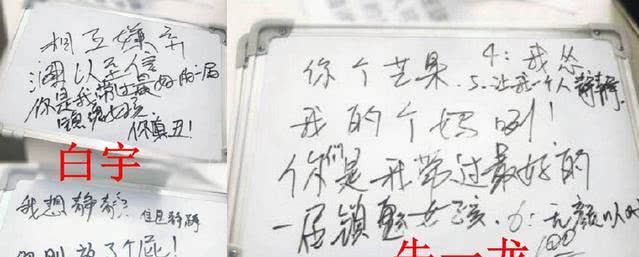 相互嫌弃
澜以至信
你是我带过最好的一届
镇魂女孩
你真丑！
白宇
我想静静？
但是静静
了个屁！
你个芒果
4：我怂
5.让我一个人静静
我的个妈咧！
你们是我带过最好的
一届镇魂女孩
6：无颜以对
100
朱一龙